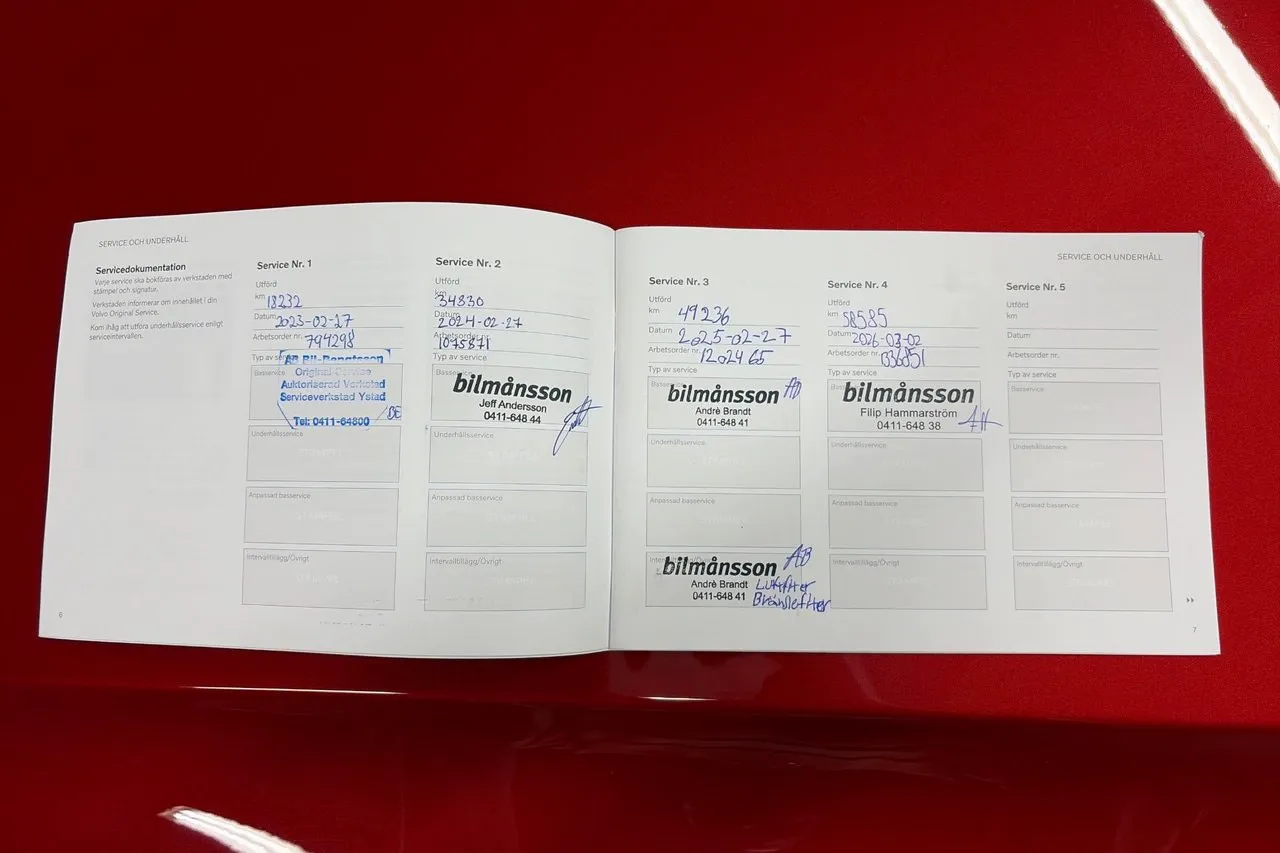 SERVICE OCH UNDERHÅLL
Servicedokumentation
Varje service ska bokföras av verkstaden med
stämpel och signatur.
Verkstaden informerar om innehållet i din
Volvo Original Service.
Kom ihåg att utföra underhållsservice enligt
serviceintervallen.
6
Service Nr. 1
Utförd
km 18232
Datum 2023-02-17
Arbetsorder nr. 794298
Typ av service
Basservice
AB Bil-Bengtsson
Original Service
Auktoriserad Verkstad
Serviceverkstad Ystad
Tel: 0411-64800
BE
Underhållsservice
Anpassad basservice
Intervalltillägg/Övrigt
Service Nr. 2
Utförd
km 34830
Datum 2024-02-27
Arbetsorder nr. 1075871
Typ av service
Basservice
bilmånsson
Jeff Andersson
0411-648 44
Underhållsservice
Anpassad basservice
Intervalltillägg/Övrigt
SERVICE OCH UNDERHÅLL
Service Nr. 3
Utförd
km 49236
Datum 2025-02-27
Arbetsorder nr. 1202465
Typ av service
Basservice
bilmånsson AB
Andrè Brandt
0411-648 41
Underhållsservice
Anpassad basservice
Intervalltillägg/Övrigt
bilmånsson AB
Andrè Brandt Luftfilter
0411-648 41 Bränslefilter
Service Nr. 4
Utförd
km 58585
Datum 2026-03-02
Arbetsorder nr.
Typ av service
Basservice
bilmånsson
Filip Hammarström
0411-648 38
Underhållsservice
Anpassad basservice
Intervalltillägg/Övrigt
Service Nr. 5
Utförd
km
Datum
Arbetsorder nr.
Typ av service
Basservice
Underhållsservice
Anpassad basservice
Intervalltillägg/Övrigt
7